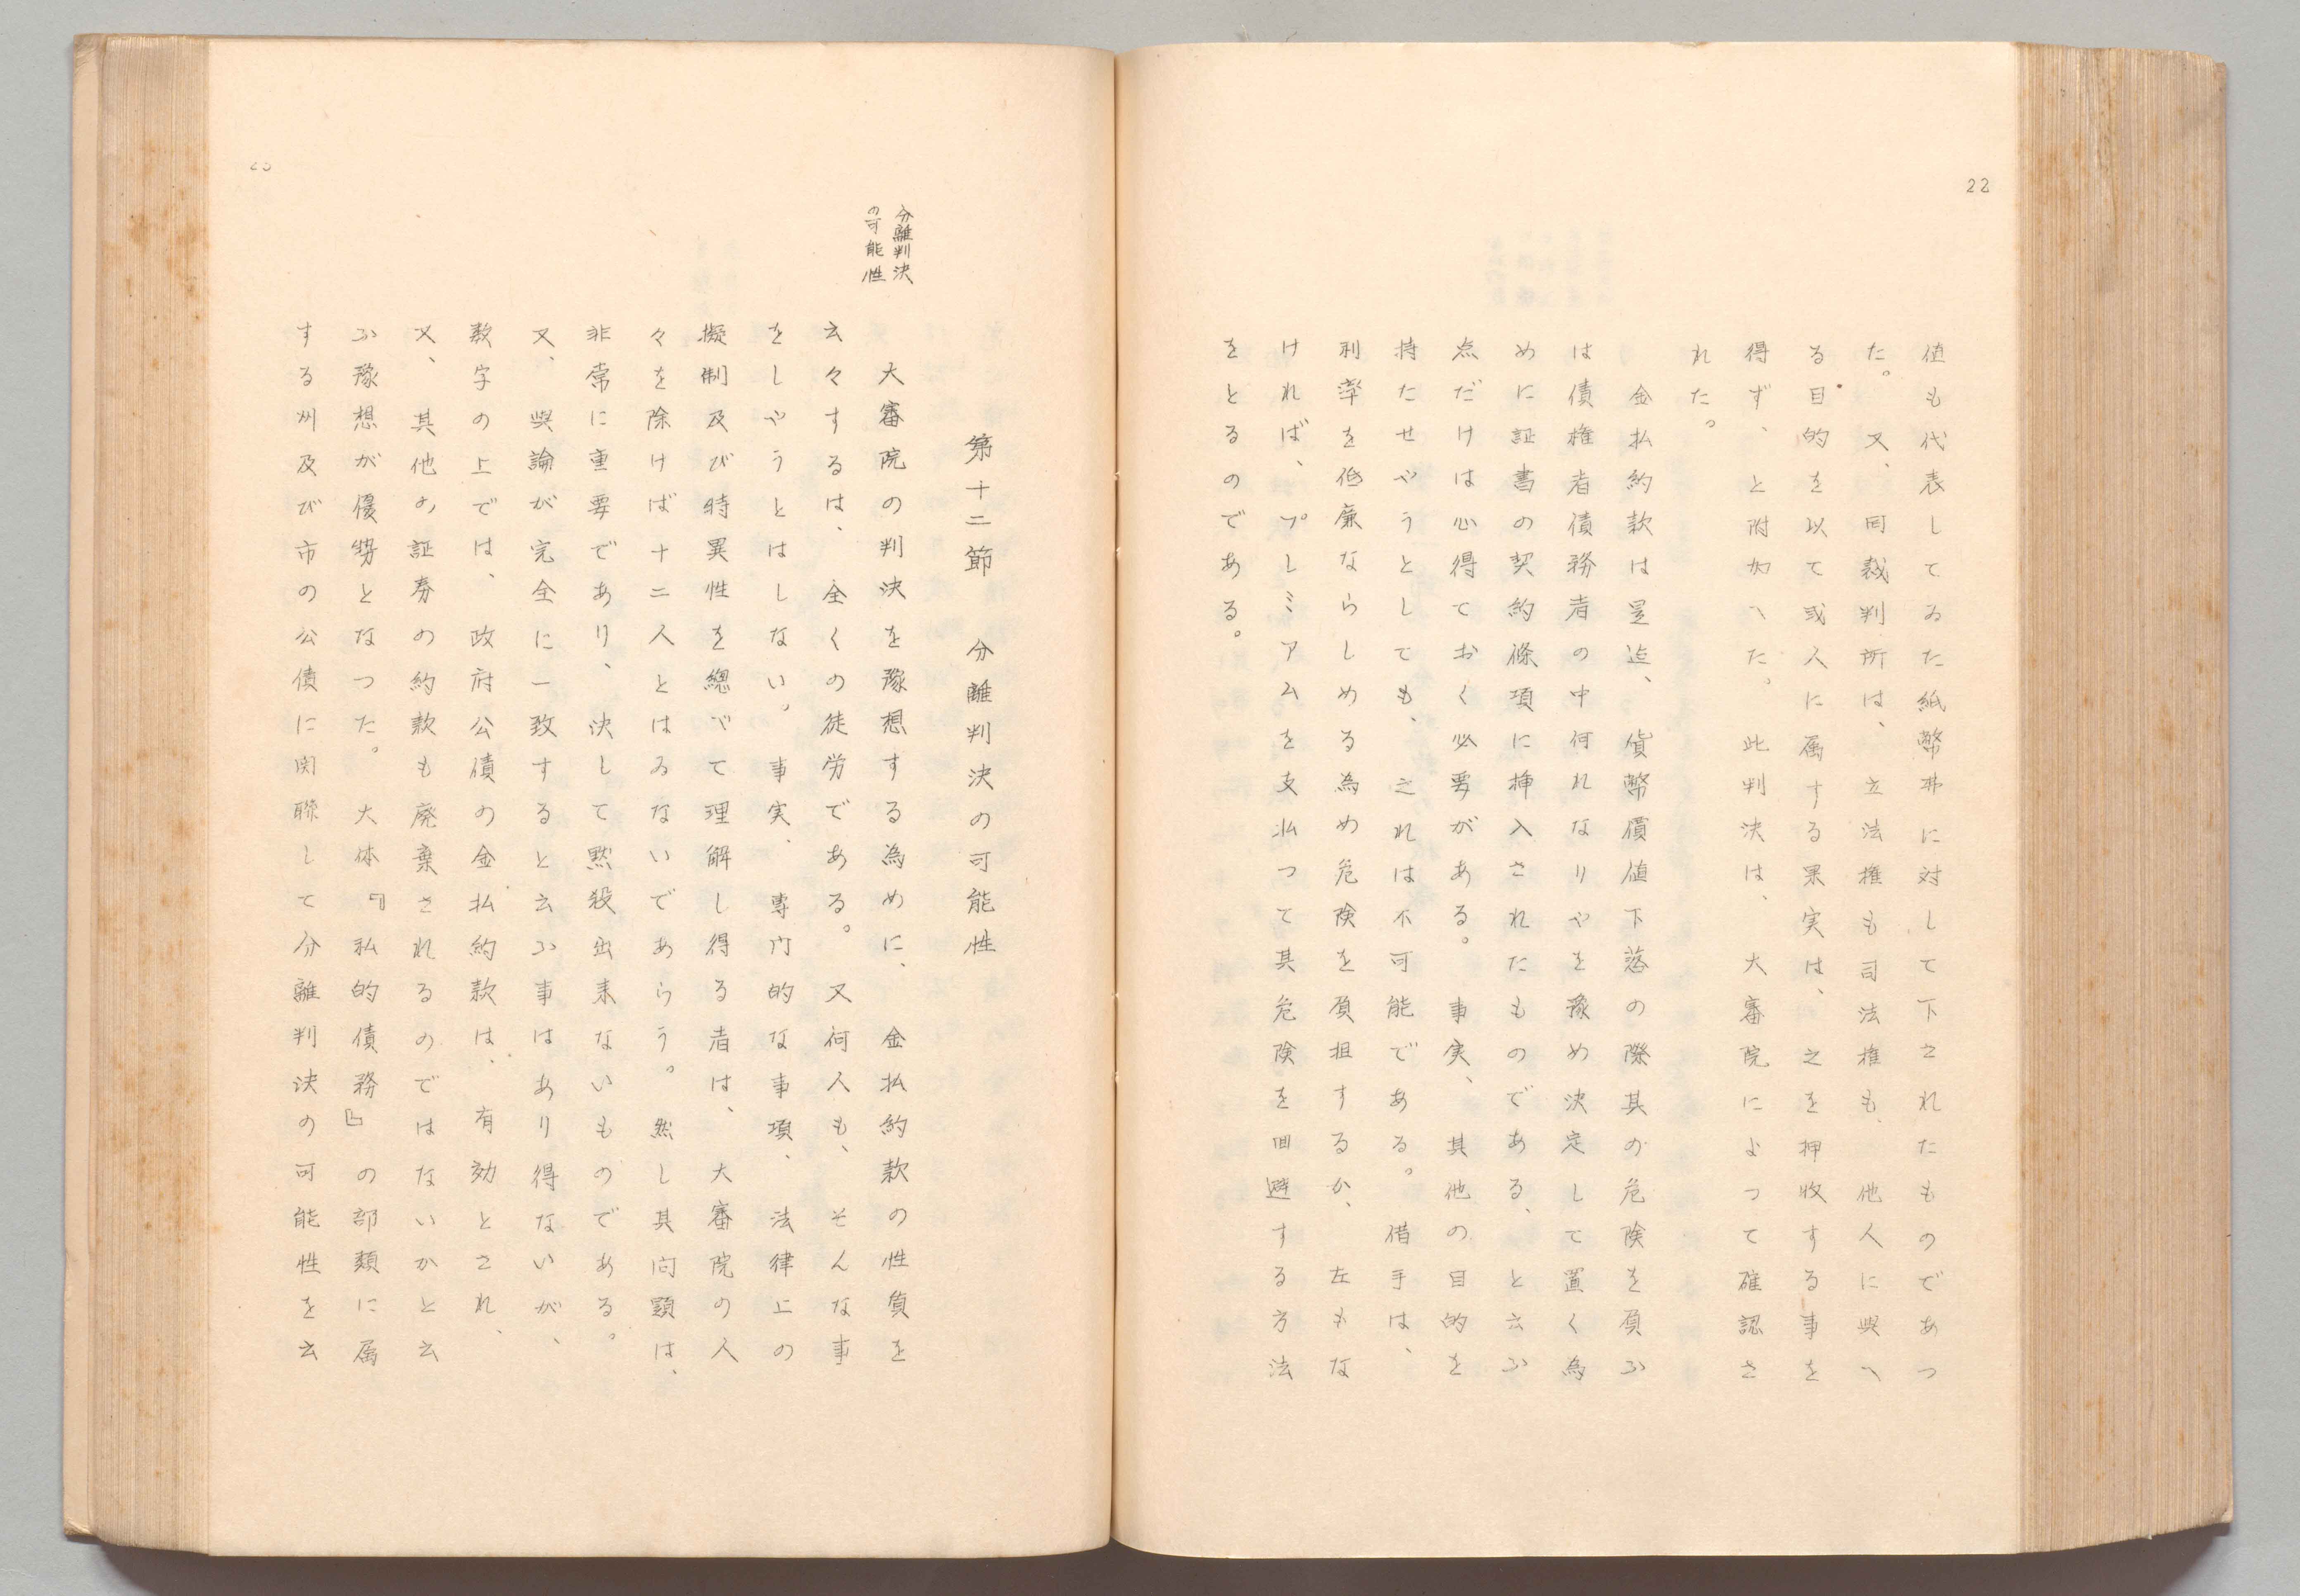 22
値も代表してゐた紙幣弗に対して下されたものであつ
た。又、同裁判所は、立法権も司法権も、他人に與へ
る目的を以て或人に属する果実は、之を押收する事を
得ず、と附加へた。此判決は、大審院によつて確認さ
れた。
金払約款は是迄、貨幣價値下落の際其の危険を負ふ
は債権者債務者の中何れなりやを豫め決定して置く為
めに証書の契約條項に挿入されたものである、と云ふ
点だけは心得ておく必要がある。事実、其他の目的を
持たせやうとしても、之れは不可能である。借手は、
利率を低廉ならしめる為め危険を負担するか、左もな
ければ、プレミアムを支払つて其危険を回避する方法
をとるのである。
分離判決
の可能性
第十二節　分離判決の可能性
大審院の判決を豫想する為めに、金払約款の性質を
云々するは、全くの徒労である。又何人も、そんな事
をしやうとはしない。事実、専門的な事項、法律上の
擬制及び時異性を總べて理解し得る者は、大審院の人
々を除けば十二人とはゐないであらう。然し其問題は、
非常に重要であり、決して黙殺出来ないものである。
又、輿論が完全に一致すると云ふ事はあり得ないが、
数字の上では、政府公債の金払約款は、有効とされ、
又、其他の証券の約款も廃棄されるのではないかと云
ふ豫想が優勢となつた。大体『私的債務』の部類に属
する州及び市の公債に関聯して分離判決の可能性を云